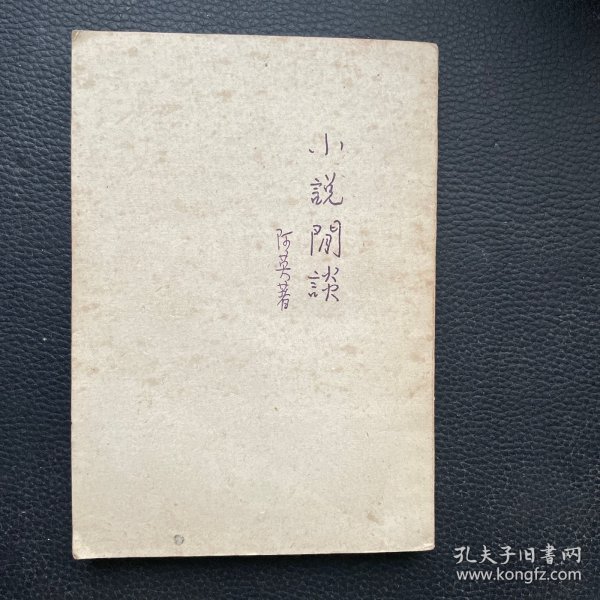 小說閒談
阿英著
孔夫子旧書网
www.kongfz.com